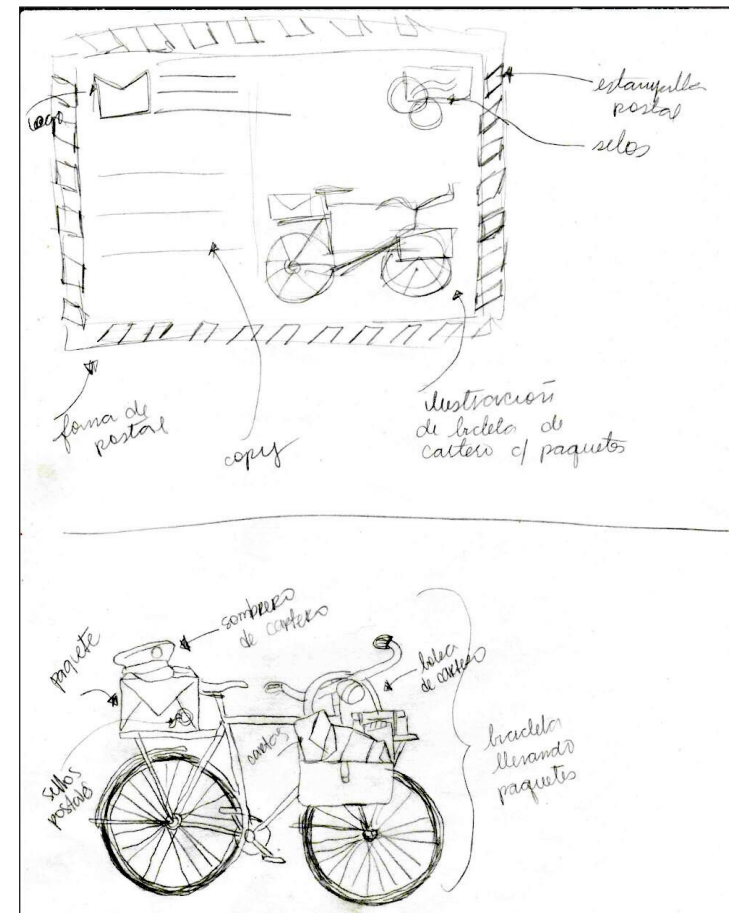 logo
estampilla
postal
sellos
forma de
postal
copy
ilustración
de bicicleta de
cartero c/ paquetes
sombrero
de cartero
paquete
bolsa
de cartero
cartas
sellos
postales
bicicleta
llevando
paquetes